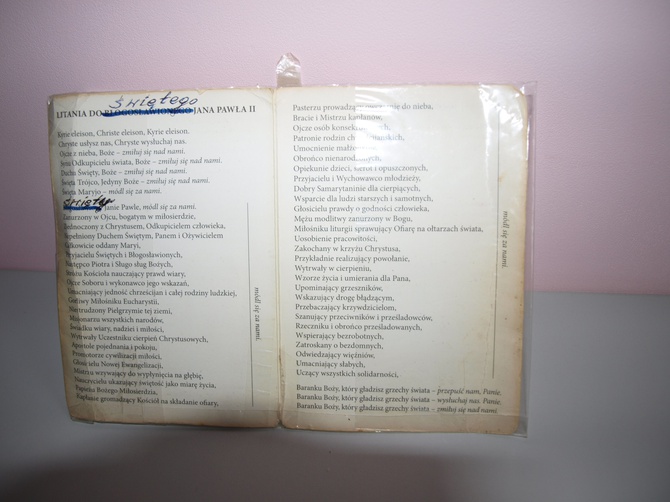 Świętego
LITANIA DO BŁOGOSŁAWIONEGO JANA PAWŁA II
Kyrie eleison, Christe eleison, Kyrie eleison.
Chryste usłysz nas, Chryste wysłuchaj nas.
Ojcze z nieba, Boże – zmiłuj się nad nami.
Synu Odkupicielu świata, Boże – zmiłuj się nad nami.
Duchu Święty, Boże – zmiłuj się nad nami.
Święta Trójco, Jedyny Boże – zmiłuj się nad nami.
Święta Maryjo – módl się za nami.
Święty Janie Pawle, módl się za nami.
Zanurzony w Ojcu, bogatym w miłosierdzie,
Zjednoczony z Chrystusem, Odkupicielem człowieka,
Napełniony Duchem Świętym, Panem i Ożywicielem
Całkowicie oddany Maryi,
Przyjacielu Świętych i Błogosławionych,
Następco Piotra i Sługo sług Bożych,
Stróżu Kościoła nauczający prawd wiary,
Ojcze Soboru i wykonawco jego wskazań,
Umacniający jedność chrześcijan i całej rodziny ludzkiej,
Gorliwy Miłośniku Eucharystii,
Niestrudzony Pielgrzymie tej ziemi,
Misjonarzu wszystkich narodów,
Świadku wiary, nadziei i miłości,
Wytrwały Uczestniku cierpień Chrystusowych,
Apostole pojednania i pokoju,
Promotorze cywilizacji miłości,
Głosicielu Nowej Ewangelizacji,
Mistrzu wzywający do wypłynięcia na głębię,
Nauczycielu ukazujący świętość jako miarę życia,
Papieżu Bożego Miłosierdzia,
Kapłanie gromadzący Kościół na składanie ofiary,
módl się za nami.
Pasterzu prowadzący owczarnię do nieba,
Bracie i Mistrzu kapłanów,
Ojcze osób konsekrowanych,
Patronie rodzin chrześcijańskich,
Umocnienie małżonków,
Obrońco nienarodzonych,
Opiekunie dzieci, sierot i opuszczonych,
Przyjacielu i Wychowawco młodzieży,
Dobry Samarytaninie dla cierpiących,
Wsparcie dla ludzi starszych i samotnych,
Głosicielu prawdy o godności człowieka,
Mężu modlitwy zanurzony w Bogu,
Miłośniku liturgii sprawujący Ofiarę na ołtarzach świata,
Uosobienie pracowitości,
Zakochany w krzyżu Chrystusa,
Przykładnie realizujący powołanie,
Wytrwały w cierpieniu,
Wzorze życia i umierania dla Pana,
Upominający grzeszników,
Wskazujący drogę błądzącym,
Przebaczający krzywdzicielom,
Szanujący przeciwników i prześladowców,
Rzeczniku i obrońco prześladowanych,
Wspierający bezrobotnych,
Zatroskany o bezdomnych,
Odwiedzający więźniów,
Umacniający słabych,
Uczący wszystkich solidarności,
módl się za nami.
Baranku Boży, który gładzisz grzechy świata – przepuść nam, Panie.
Baranku Boży, który gładzisz grzechy świata – wysłuchaj nas, Panie.
Baranku Boży, który gładzisz grzechy świata – zmiłuj się nad nami.